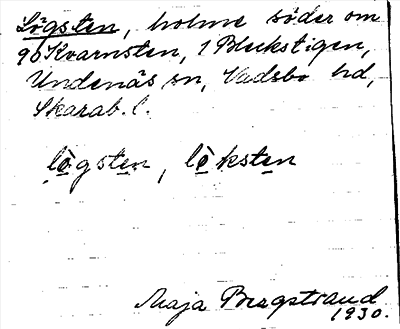 Lögsten, holme söder om
96 Kvarnsten, 1 Bleckstigen,
Undenäs sn, Vadsbo hd,
Skarab. l.
lògsten, lòksten
Maja Bergstrand
1930.